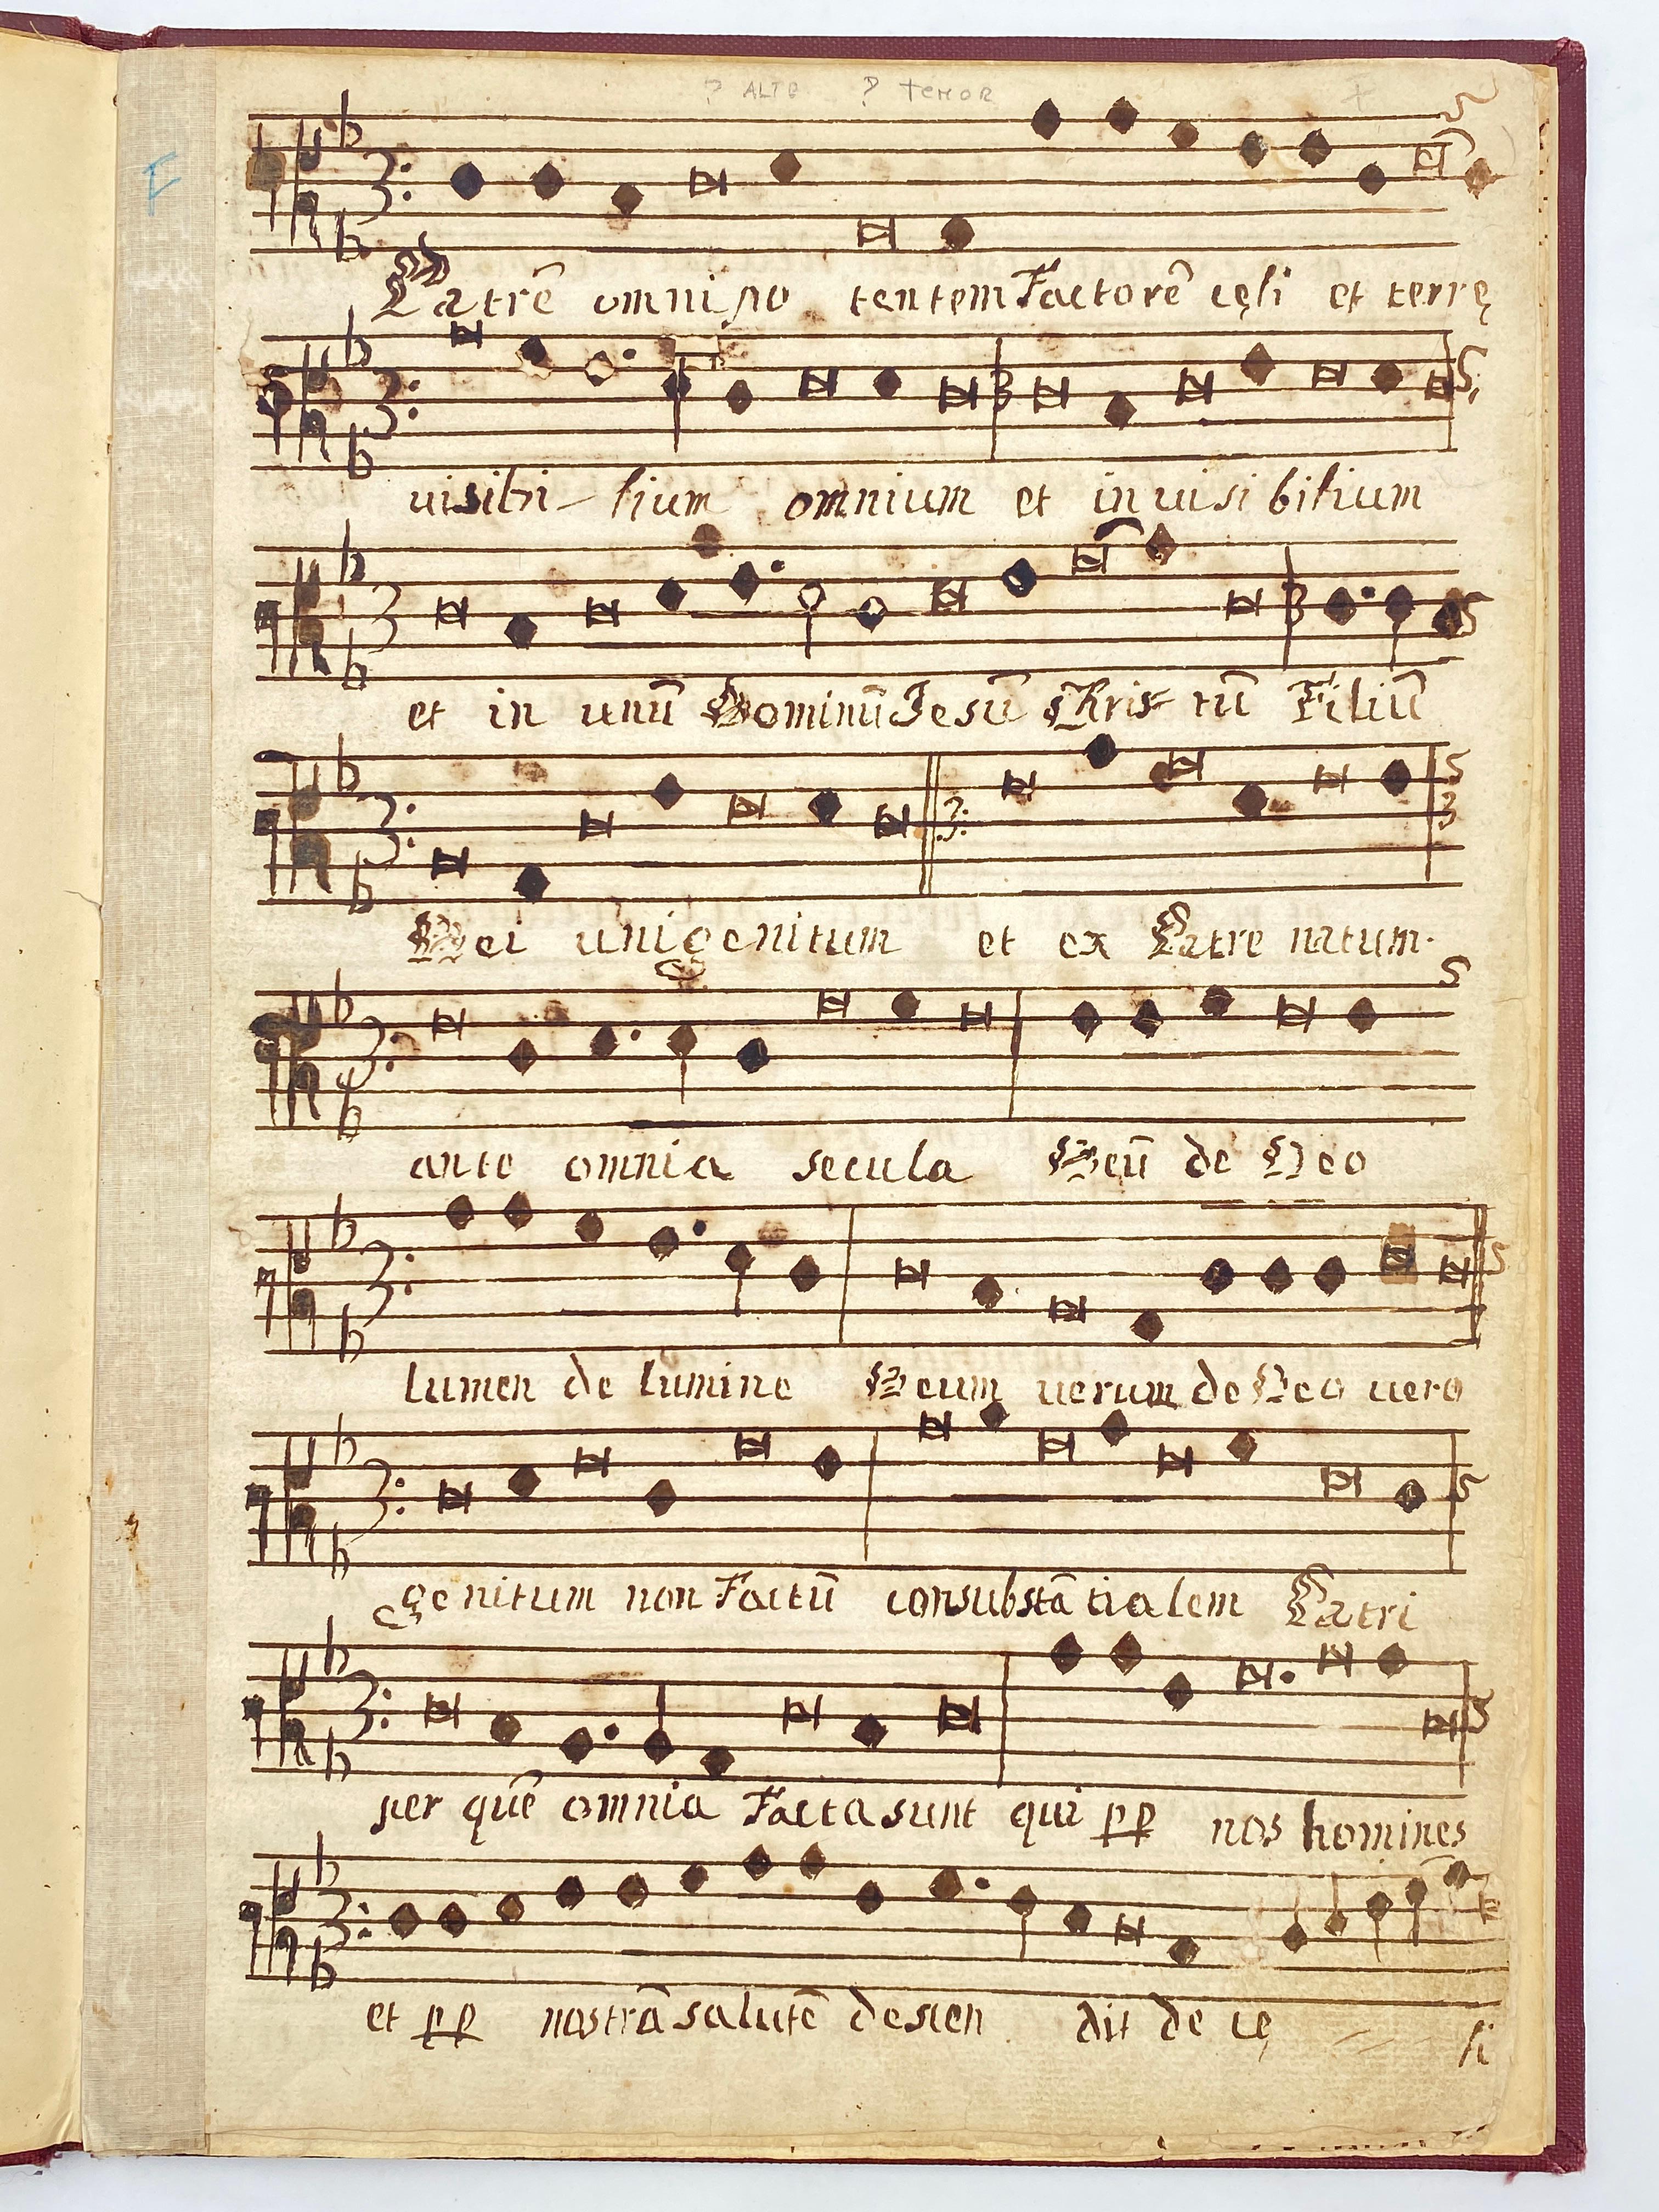 ? ALTO ? TENOR
F
Patrē omnipo tentem Factorē cęli et terrę
uisibi- lium omnium et inuisi bilium
et in unū Dominū Jesū Chris- tū Filiū
Dei unigenitum et ex Patre natum.
ante omnia secula Deū de Deo
lumen de lumine Deum uerum de Deo uero
genitum non Factū consubstā tialem Patri
per quē omnia Facta sunt qui pp nos homines
et pp nostrā salutē descen dit de cę li